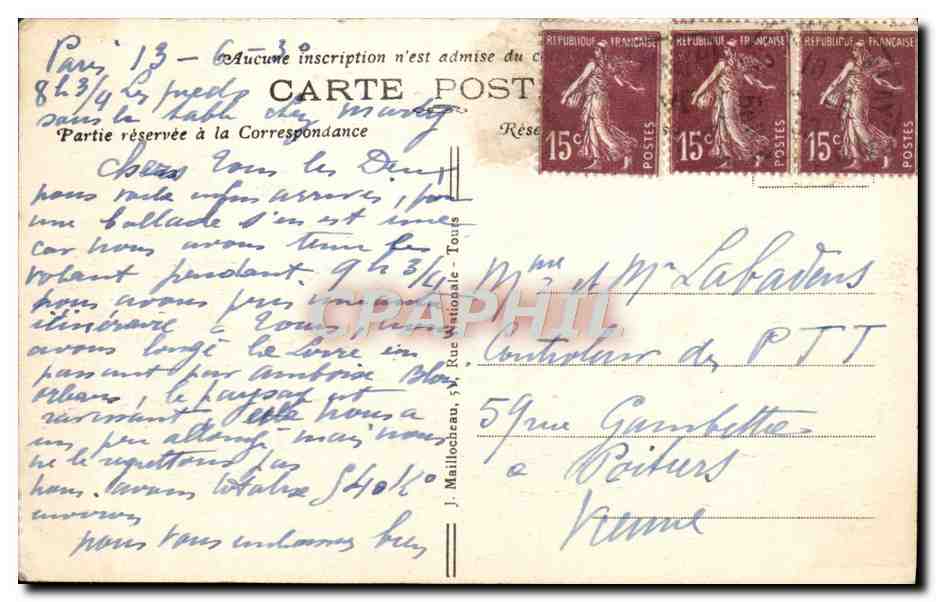 Paris 13 - 6 - 30
Aucune inscription n'est admise du c
8 h 3/4 Les pieds
CARTE POST
sous la table chez
Partie réservée à la Correspondance
Rése
Chers Tous les Deux
nous voilà enfin arrivés, pour
une ballade s'en est une
car nous avons tenu le
volant pendant 9 h 3/4
nous avons pris
itinéraire à Tours, nous
avons longé la Loire en
passant par amboise Blois
orléans, le paysage est
ravissant, cela nous a
un peu allongé mais nous
ne le regrettons pas
nous avons totalisé 540 Ko
environ
nous vous embrassons bien
J. Maillocheau, 51, Rue Nationale - Tours
RÉPUBLIQUE FRANÇAISE
15c POSTES
RÉPUBLIQUE FRANÇAISE
15c POSTES
RÉPUBLIQUE FRANÇAISE
15c POSTES
Mme et Mr Labadens
Controleur des P T T
59 rue Gambetta
à Poitiers
Vienne
CPAPHIL